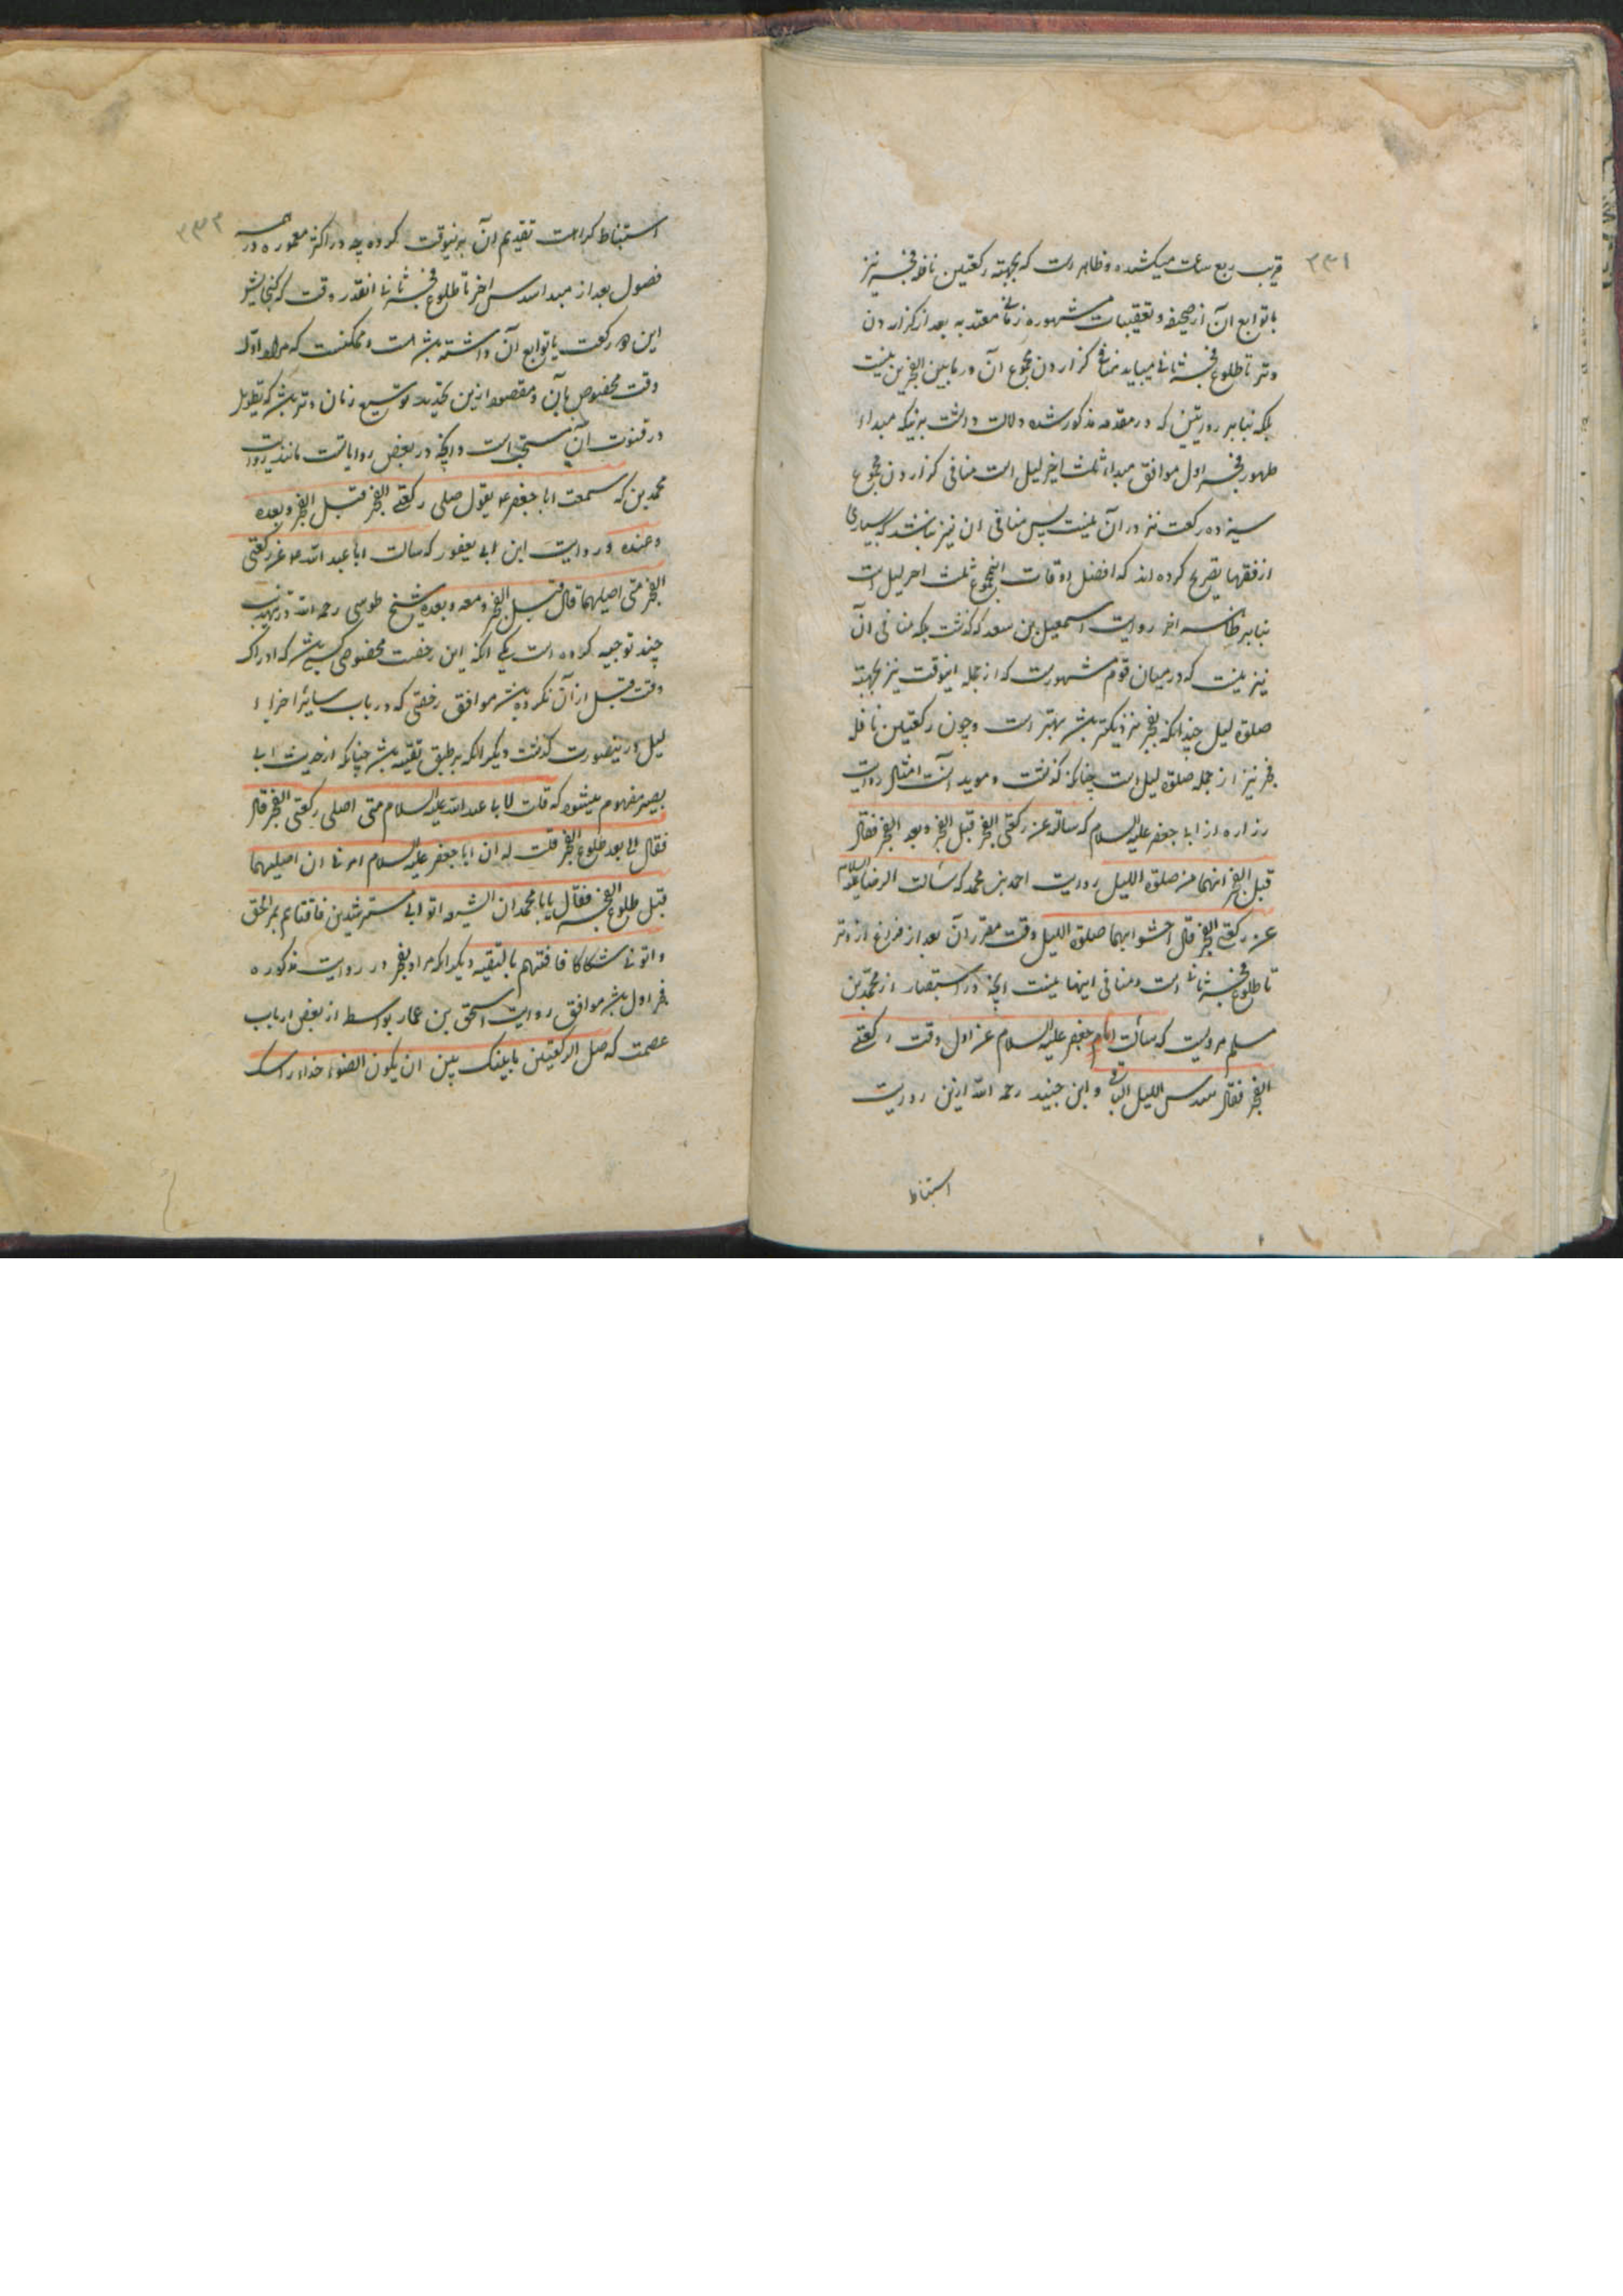 ۲۳۱
قریب ربع ساعت میکشد و ظاهر است که بجهته رکعتین نافله فجر نیز
با توابع آن از ضجعه و تعقیبات مشهوره زمانی معتد به بعد از گزاردن
وتر تا طلوع فجر ثانی میباید منافی گزاردن مجموع آن در مابین الفجرین نیست
بلکه بنابر روایتین که در مقدمه مذکور شده دلالت داشت برینکه مبداء
ظهور فجر اول موافق مبداء ثلث اخیر لیل است منافی گزاردن مجموع
سیزده رکعت نیز در آن نیست پس منافی ان نیز نباشد که بسیاری
از فقها تصریح کرده اند که افضل اوقات اینمجموع ثلث اخر لیل است
بنابر ظاهر اخر روایت اسمعیل بن سعد که گذشت بلکه منافی آن
نیز نیست که در میان قوم مشهورست که از جمله اینوقت نیز بجهته
صلوة لیل چندانکه بفجر نزدیکتر باشد بهتر است و چون رکعتین نافله
فجر نیز از جمله صلوة لیل است چنانکه گذشت و موید آنست امثال روایت
زراره از ابا جعفر علیه السلام که سالته عن رکعتی الفجر قبل الفجر و بعد الفجر فقال
قبل الفجر انهما من صلوة اللیل و روایت احمد بن محمد که سألت الرضا علیه السلام
عن رکعتی الفجر قال احشوا بهما صلوة اللیل وقت مقرر آن بعد از فراغ از وتر
تا طلوع فجر ثانی است و منافی اینها نیست انچه در استبصار از محمد بن
مسلم مرویست که سألت امام جعفر علیه السلام عن اول وقت رکعتی
الفجر فقال سدس اللیل الباقی و ابن جنید رحمه الله ازین روایت
استنباط
۲۳۲
استنباط کراهت تقدیم آن برینوقت کرده چه در اکثر معموره در همه
فصول بعد از مبداء سدس اخر تا طلوع فجر ثانی انقدر وقت که گنجایش
این دو رکعت با توابع آن داشته باشد هست و ممکنست که مراد اول
وقت مخصوص بآن و مقصود ازین تحدید توسیع زمان وتر باشد که تطویل
در قنوت آن مستحب است و انچه در بعض روایاتست مانند روایت
محمد بن که سمعت ابا جعفر ع یقول صلی رکعتی الفجر قبل الفجر و بعده
و عنده و روایت ابن ابی یعفور که سالت ابا عبد الله ع عن رکعتی
الفجر متی اصلیهما قال قبل الفجر و معه و بعده شیخ طوسی رحمه الله در تهذیب
چند توجیه کرده است یکی انکه این رخصت مخصوص کسی باشد که ادراک
وقت قبل از آن نکرده باشد موافق رخصتی که در باب سایر اجزاء
لیل درینصورت گذشت دیگر انکه بر طبق تقیه باشد چنانکه از حدیث ابی
بصیر مفهوم میشود که قلت لابا عبد الله علیه السلام متی اصلی رکعتی الفجر قال
فقال لی بعد طلوع الفجر قلت له ان ابا جعفر علیه السلام امرنی ان اصلیهما
قبل طلوع الفجر فقال یابا محمد ان الشیعه اتوا ابی مسترشدین فافتاهم بمر الحق
و اتونی شکاکا فافتیتهم بالتقیه دیگر انکه مراد بفجر در روایت مذکوره
فجر اول باشد موافق روایت اسحق بن عمار بواسطه از بعض ارباب
عصمت که صل الرکعتین ما بینک و بین ان یکون الضوء حذاء راسک